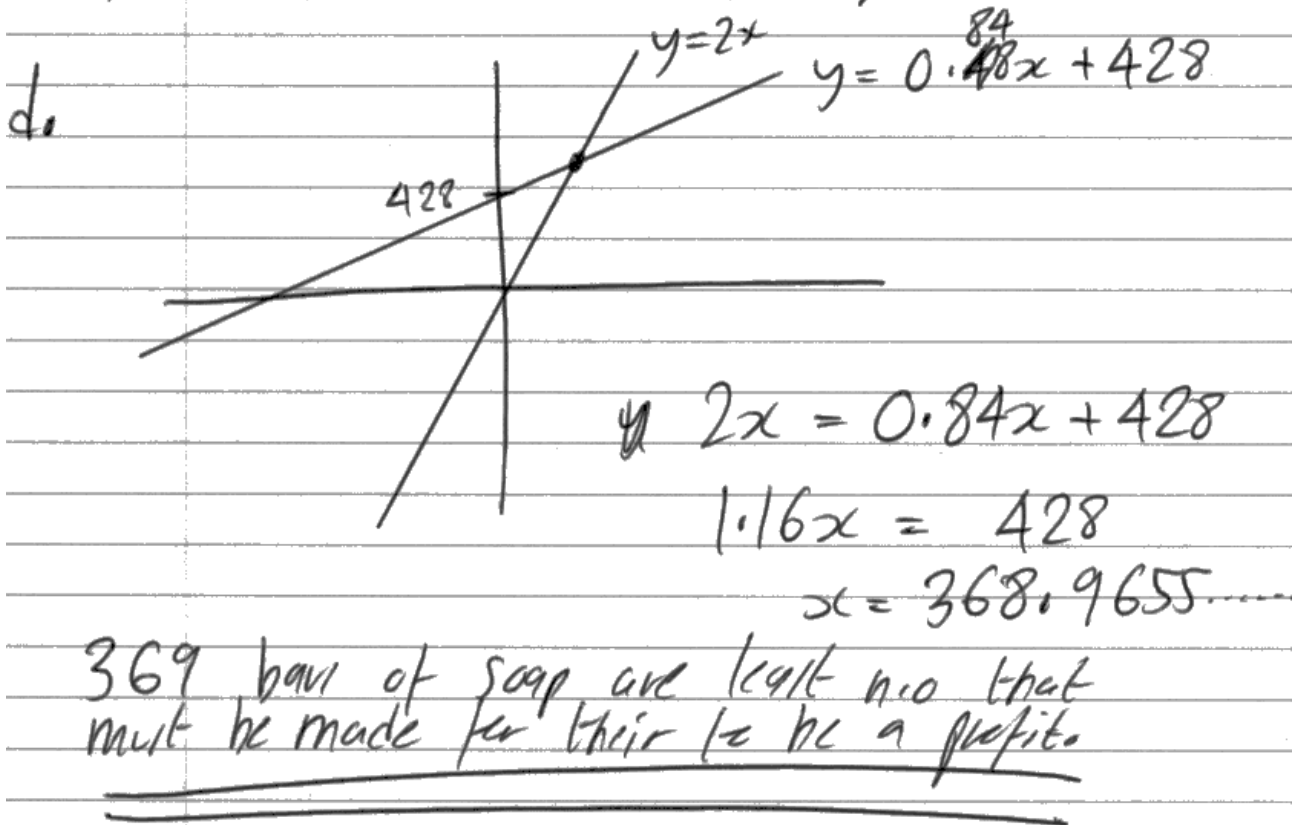 d.
y=2x
y= 0.84x + 428
428
2x = 0.84x + 428
1.16x = 428
x = 368.9655......
369 bars of soap are least n.o that
must be made for their to be a profit.